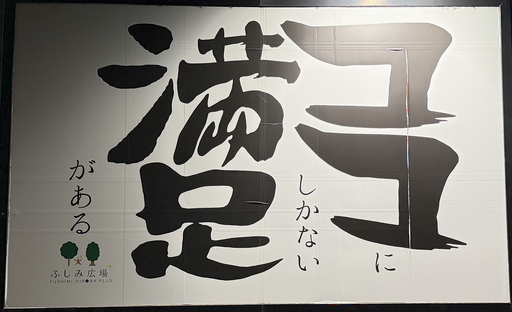 ココに
しかない
満足
がある
ふしみ広場
FUSHIMI HIROBA PLUS